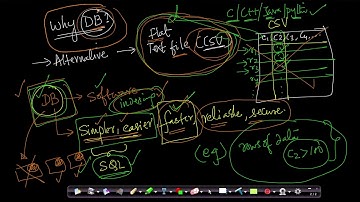 Why DB?
→ Alternative
Flat
Text file (CSV)
C/C++/Java/Python
CSV
C1, C2, C3, C4, ...
r1
r2
r3
DB → Software
indexing
Simpler, easier, faster, reliable, secure
SQL
(eg)
rows of data
C2 > 100